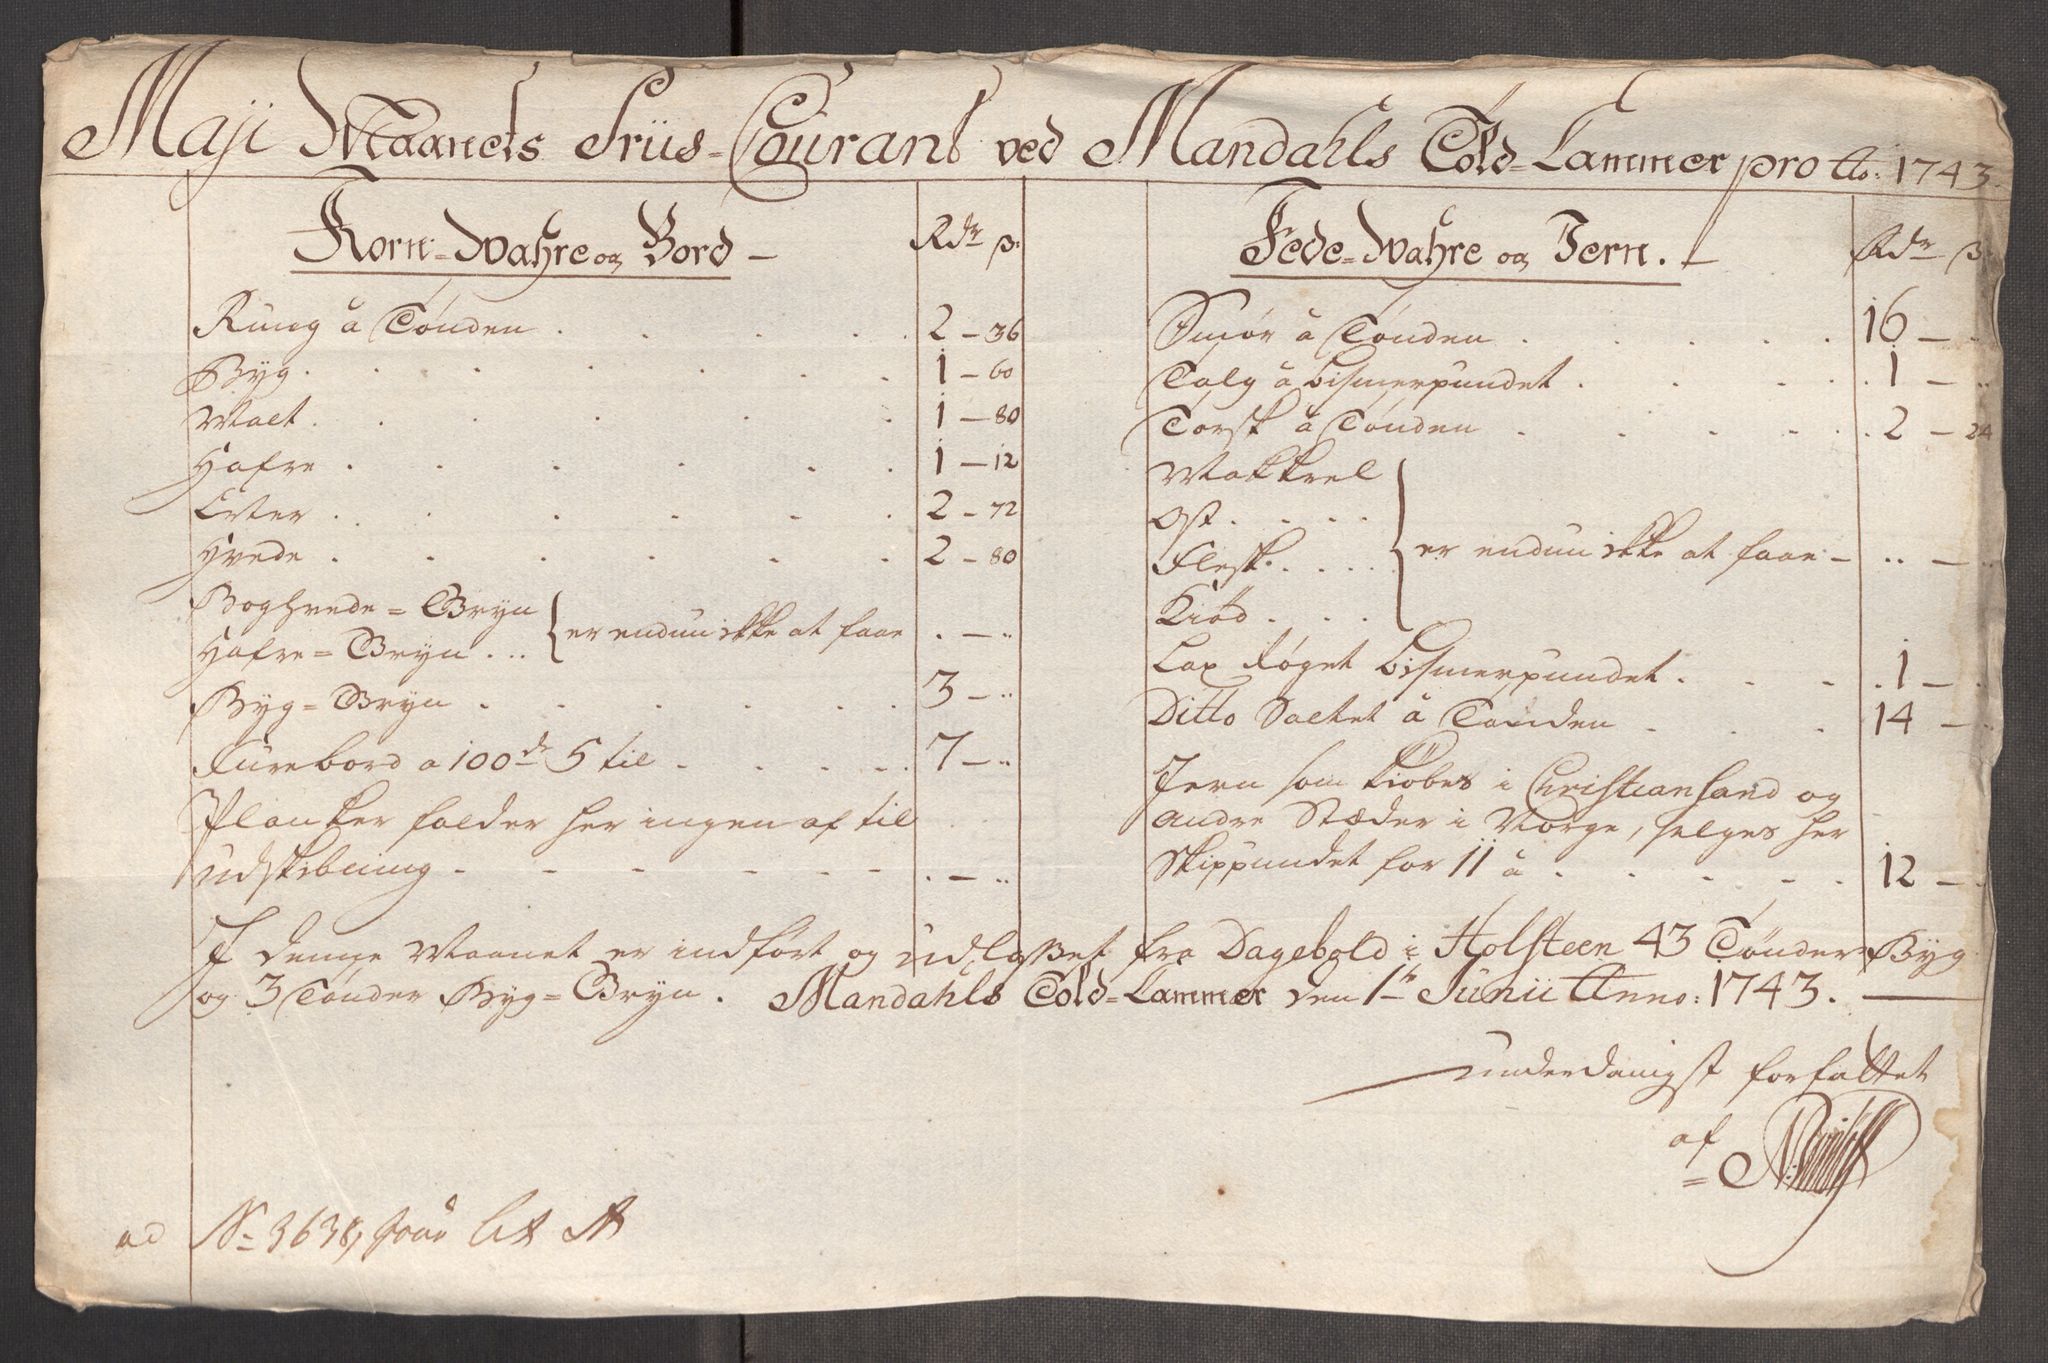 Maji Maanets Priis-Courant ved Mandahls Told-Cammer pro Ao: 1743.
Korn-Wahre og Bord - Rdr ß:
Rueg â Tønden . . . . 2 - 36
Byg . . . . . . 1 - 60
Malt . . . . . . 1 - 80
Hafre . . . . . . 1 - 12
Erter . . . . . . 2 - 72
Hvede . . . . . . 2 - 80
Boghvede-Gryn
Hafre-Gryn . . . } er enduu ikke at faae . - ..
Byg-Gryn . . . . . 3 - ..
Furebord a 100de 5 til . . . . 7 - ..
Planker falder her ingen af til
udskibning - - - - - . - ..
Fede-Wahre og Jern. - Rdr ß
Smør â Tønden . . . . . 16 - .
Talg â bismerpundet . . . . 1 - ..
Torsk â Tønden . . . . . 2 - 24
Makkrel
Ost . . . .
Flesk . . . . } er enduu ikke at faae - .. - ..
Kiød . . . .
Lax røget bismerpundet . . . . 1 - .
Ditto Saltet â Tønden . . . 14 - ..
Jern som kiøbes i Christiansand og
andre Stæder i Norge, selges her
Skippundet for 11 â . . . . . 12 - .
I denne Maanet er indført og udlosset fra Dagebold i Holsteen 43 Tønder Byg
og 3 Tønder Byg-Gryn. Mandahls Told-Cammer den 1te Junii Anno: 1743.
underdanigst forfattet
af
ad No 3638, Lit A